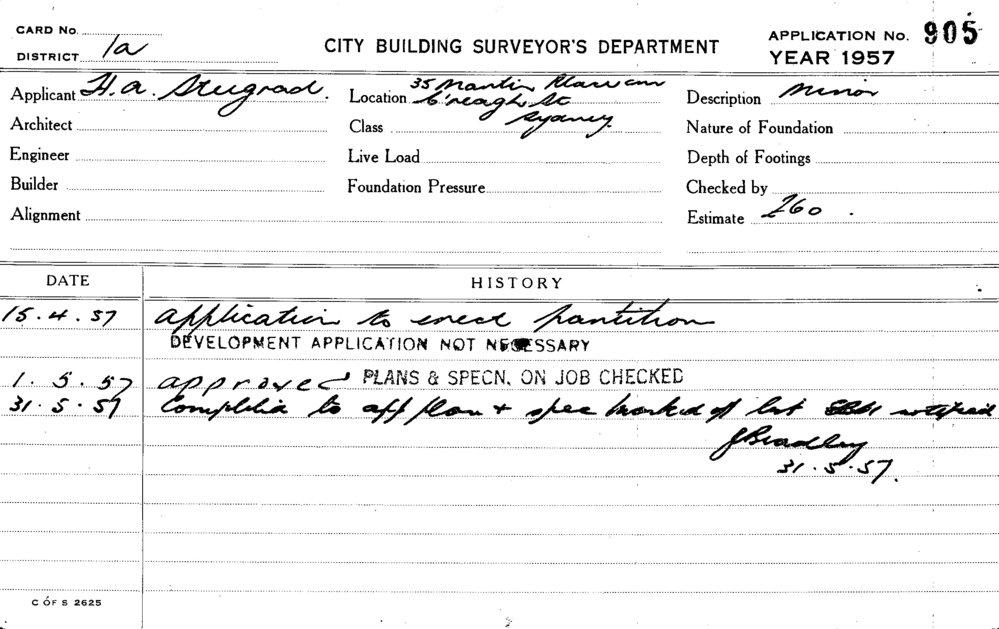 CARD No.
DISTRICT 1a
CITY BUILDING SURVEYOR'S DEPARTMENT
APPLICATION No. 905
YEAR 1957
Applicant H.A.
Location 35 Martin Place cnr
C'reagh St
Sydney
Description Minor
Architect
Class
Nature of Foundation
Engineer
Live Load
Depth of Footings
Builder
Foundation Pressure
Checked by
Alignment
Estimate £60
DATE
HISTORY
15.4.57 application to erect partition
DEVELOPMENT APPLICATION NOT NECESSARY
1.5.57 approved PLANS & SPECN. ON JOB CHECKED
31.5.57 to app plan + spec marked off notified
JBradley
31.5.57.
C OF S 2625